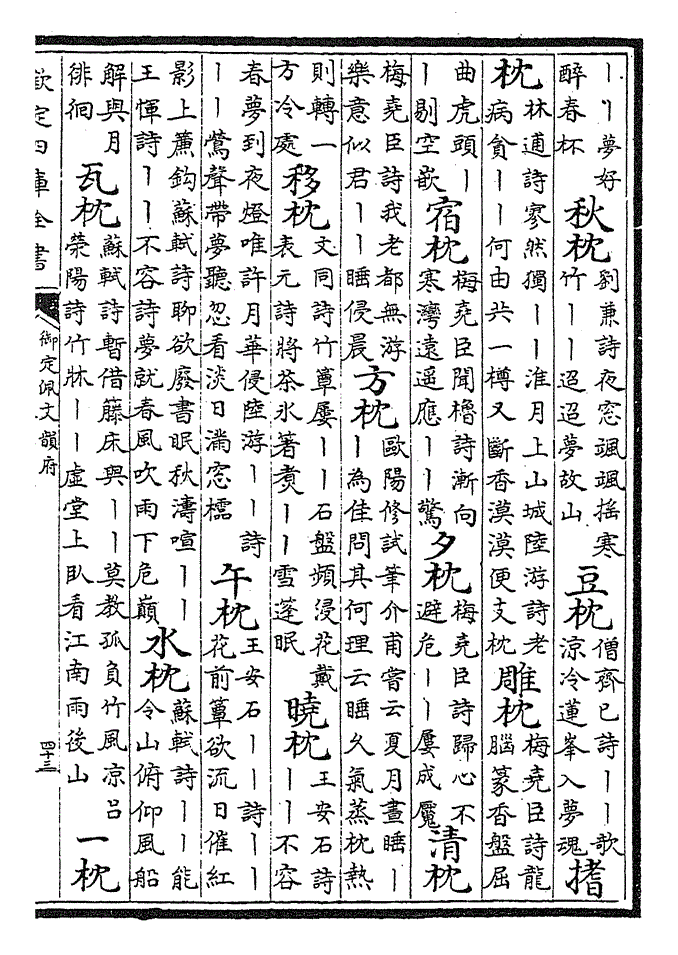 丨丨夢好
醉春杯
秋枕
劉兼詩夜窓颯颯揺寒
竹丨丨迢迢夢故山
豆枕
僧齊已詩丨丨歌
涼冷蓮峯入夢魂
搘
枕
林逋詩寥然獨丨丨淮月上山城陸游詩老
病貧丨丨何由共一樽又斷香漠漠便支枕
雕枕
梅堯臣詩龍
腦篆香盤屈
曲虎頭丨
丨剔空嵌
宿枕
梅堯臣聞櫓詩漸向
寒灣遠遥應丨丨驚
夕枕
梅堯臣詩歸心不
避危丨丨屢成魘
清枕
梅堯臣詩我老都無游
樂意似君丨丨睡侵晨
方枕
歐陽修試筆介甫嘗云夏月晝睡丨
丨為佳問其何理云睡久氣蒸枕熱
則轉一
方冷處
移枕
文同詩竹簟屢丨丨石盤頻浸花戴
表元詩將茶氷著煑丨丨雪蓬眠
曉枕
王安石詩
丨丨不容
春夢到夜燈唯許月華侵陸游丨丨詩
丨丨鶯聲帶夢聽忽看淡日滿窓櫺
午枕
王安石丨丨詩丨丨
花前簟欲流日催紅
影上簾鈎蘇軾詩聊欲廢書眠秋濤喧丨丨
王惲詩丨丨不容詩夢就春風吹雨下危巔
水枕
蘇軾詩丨丨能
令山俯仰風船
解與月
徘徊
瓦枕
蘇軾詩暫借藤床與丨丨莫教孤負竹風凉吕
滎陽詩竹牀丨丨虚堂上臥看江南雨後山
一枕
欽定四庫全書
御定佩文韻府
四十三